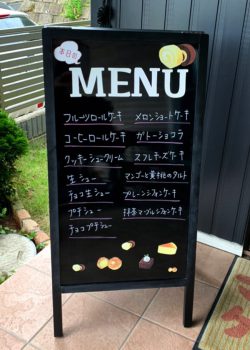 本日の
MENU
フルーツロールケーキ
コーヒーロールケーキ
クッキーシュークリーム
生シュー
チョコ生シュー
プチシュー
チョコプチシュー
メロンショートケーキ
ガトーショコラ
スフレチーズケーキ
マンゴーと黄桃のタルト
プレーンシフォンケーキ
抹茶マーブルシフォンケーキ